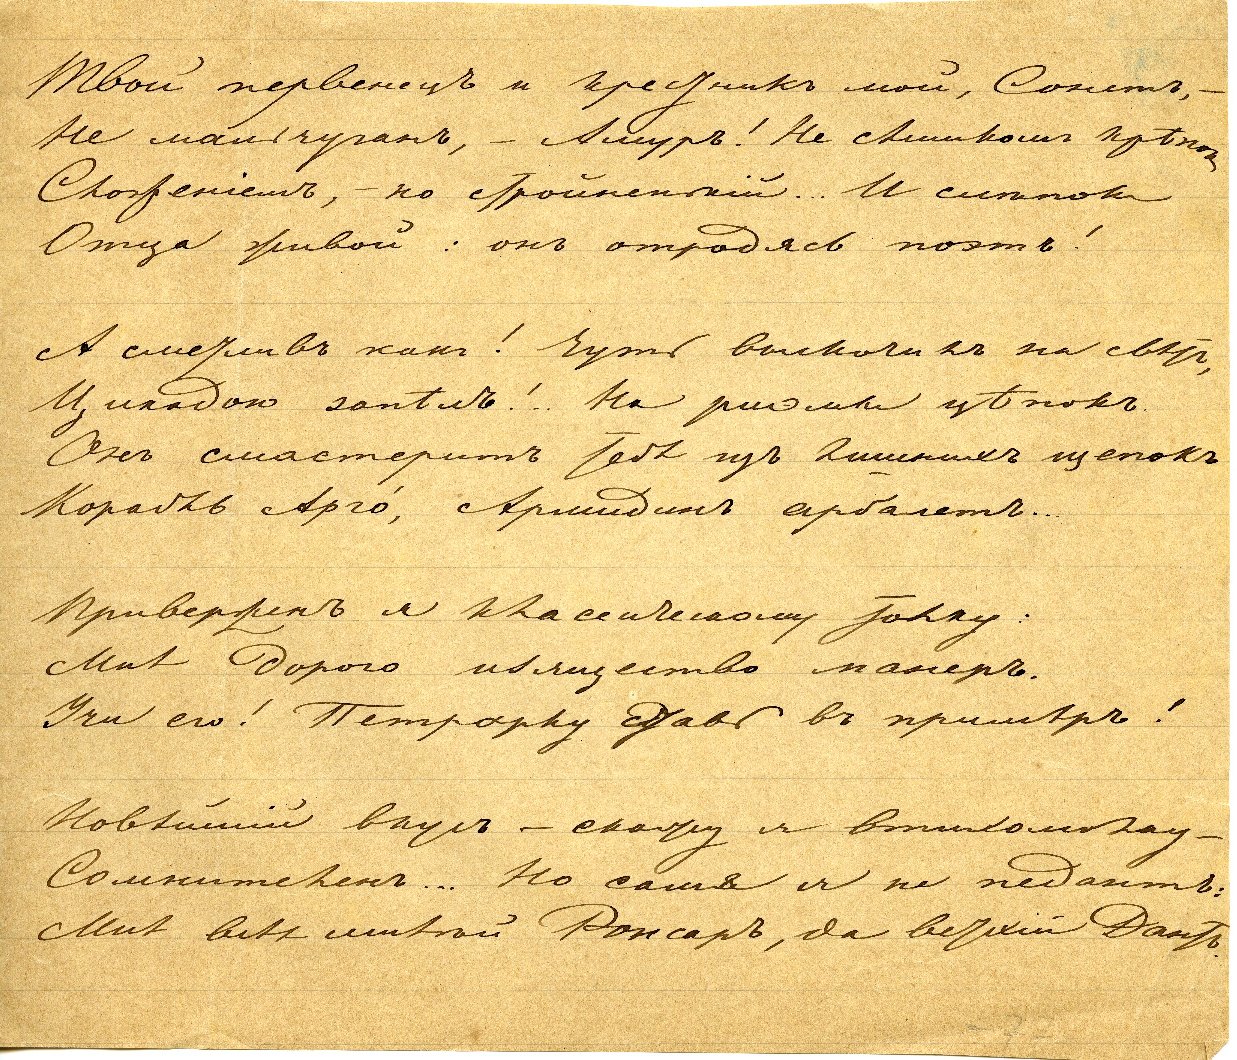 Твой первенецъ и крестникъ мой, Сонетъ, –
Не мальчуганъ, – Амуръ! Не слишкомъ крѣпокъ
Сложеніемъ, – но стройненькій... И слѣпокъ
Отца живой: онъ отродясь поэтъ!
А сметливъ какъ! Чуть выскочилъ на свѣтъ,
Цикадою запѣлъ!.. На риѳмы цѣпокъ.
Онъ смастеритъ тебѣ изъ лишнихъ щепокъ
Корабль Арго́, Армидинъ арбалетъ...
Приверженъ я классическому толку:
Мнѣ дорого изящество манеръ.
Учи его! Петрарку ставь въ примѣръ!
Новѣйшій вкусъ – скажу я втихомолку –
Сомнителенъ... Но самъ я не педантъ:
Мнѣ всѣхъ милѣй Ронсаръ, да ветхій Дантъ.